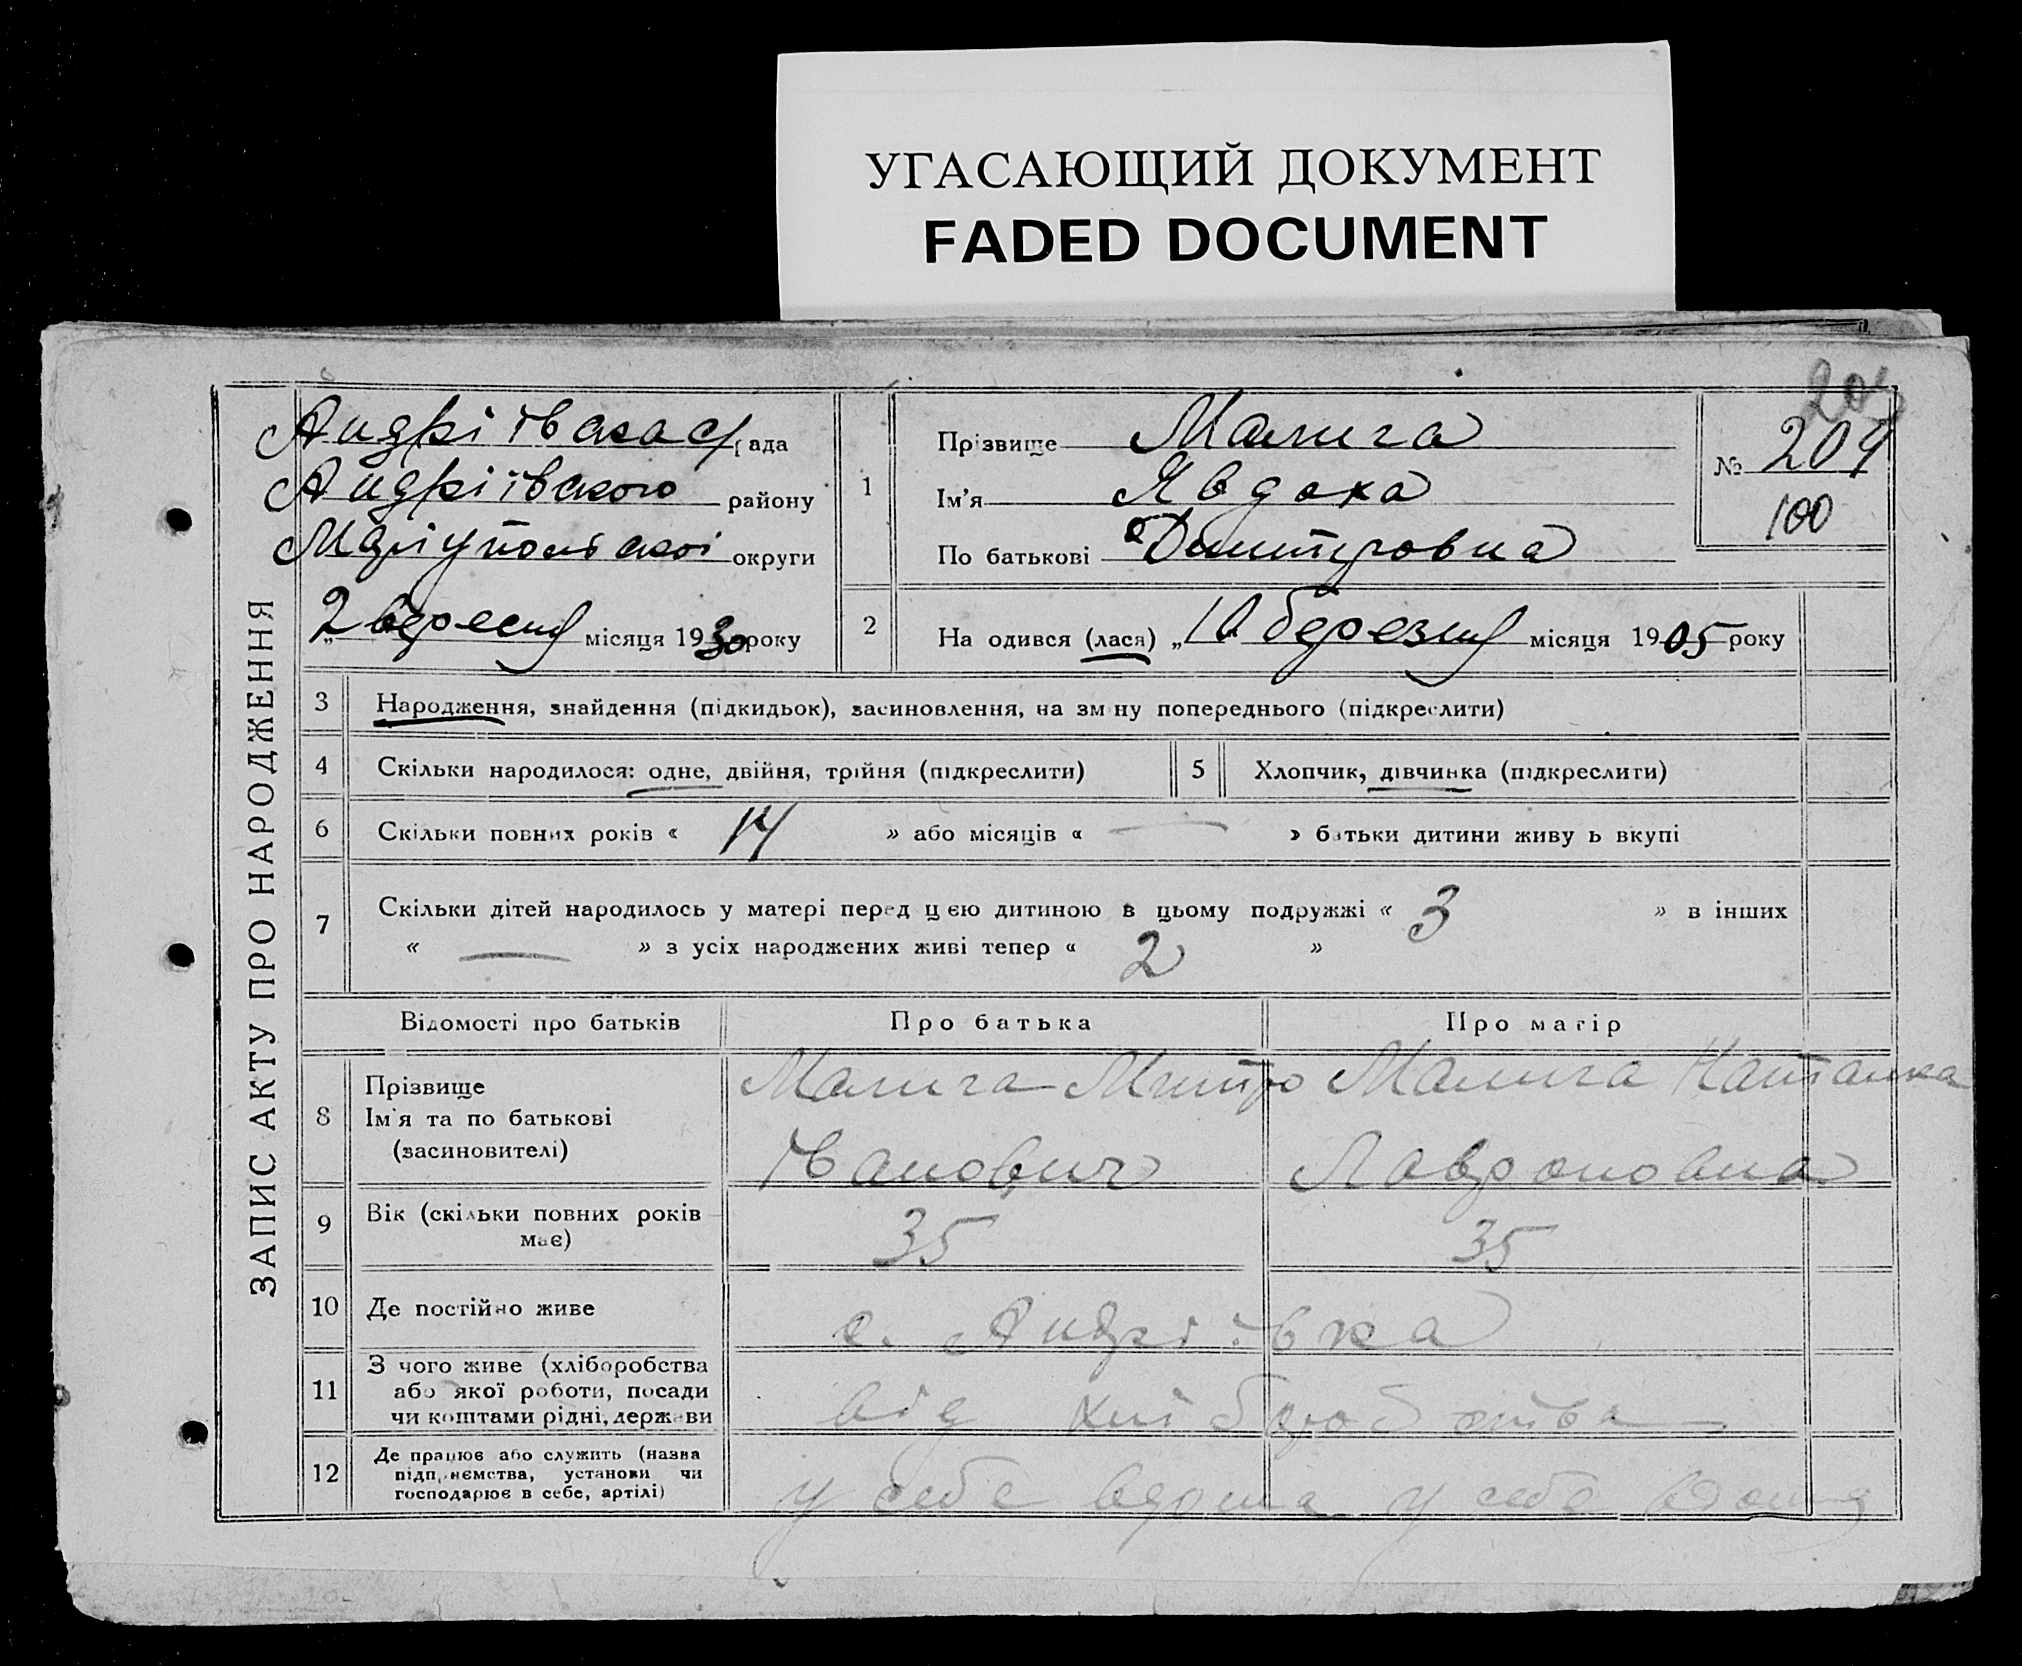 УГАСАЮЩИЙ ДОКУМЕНТ
FADED DOCUMENT
ЗАПИС АКТУ ПРО НАРОДЖЕННЯ
Андріївська с/рада
Андріївського району
Маріупольської округи
„2 вересня місяця 1930 року
1
Прізвище Малига
Ім'я Явдоха
По батькові Дмитровна
204
№ 204
100
2 На одився (лася) „10 березня місяця 1905 року
3 Народження, знайдення (підкидьок), засиновлення, на зміну попереднього (підкреслити)
4 Скільки народилося: одне, двійня, трійня (підкреслити)
5 Хлопчик, дівчинка (підкреслити)
6 Скільки повних років « 14 » або місяців « — » батьки дитини живуть вкупі
7 Скільки дітей народилось у матері перед цією дитиною в цьому подружжі « 3 » в інших
« — » з усіх народжених живі тепер « 2 »
Відомості про батьків Про батька Про матір
8 Прізвище
Ім'я та по батькові
(засиновителі)
Малига Митро
Іванович
Малига Наталка
Лавроновна
9 Вік (скільки повних років
має)
35 35
10 Де постійно живе с. Андріївка
11 З чого живе (хліборобства
або якої роботи, посади
чи коштами рідні, держави
від хліборобства
12 Де працює або служить (назва
підприємства, установи чи
господарює в себе, артілі)
у себе вдома у себе вдома